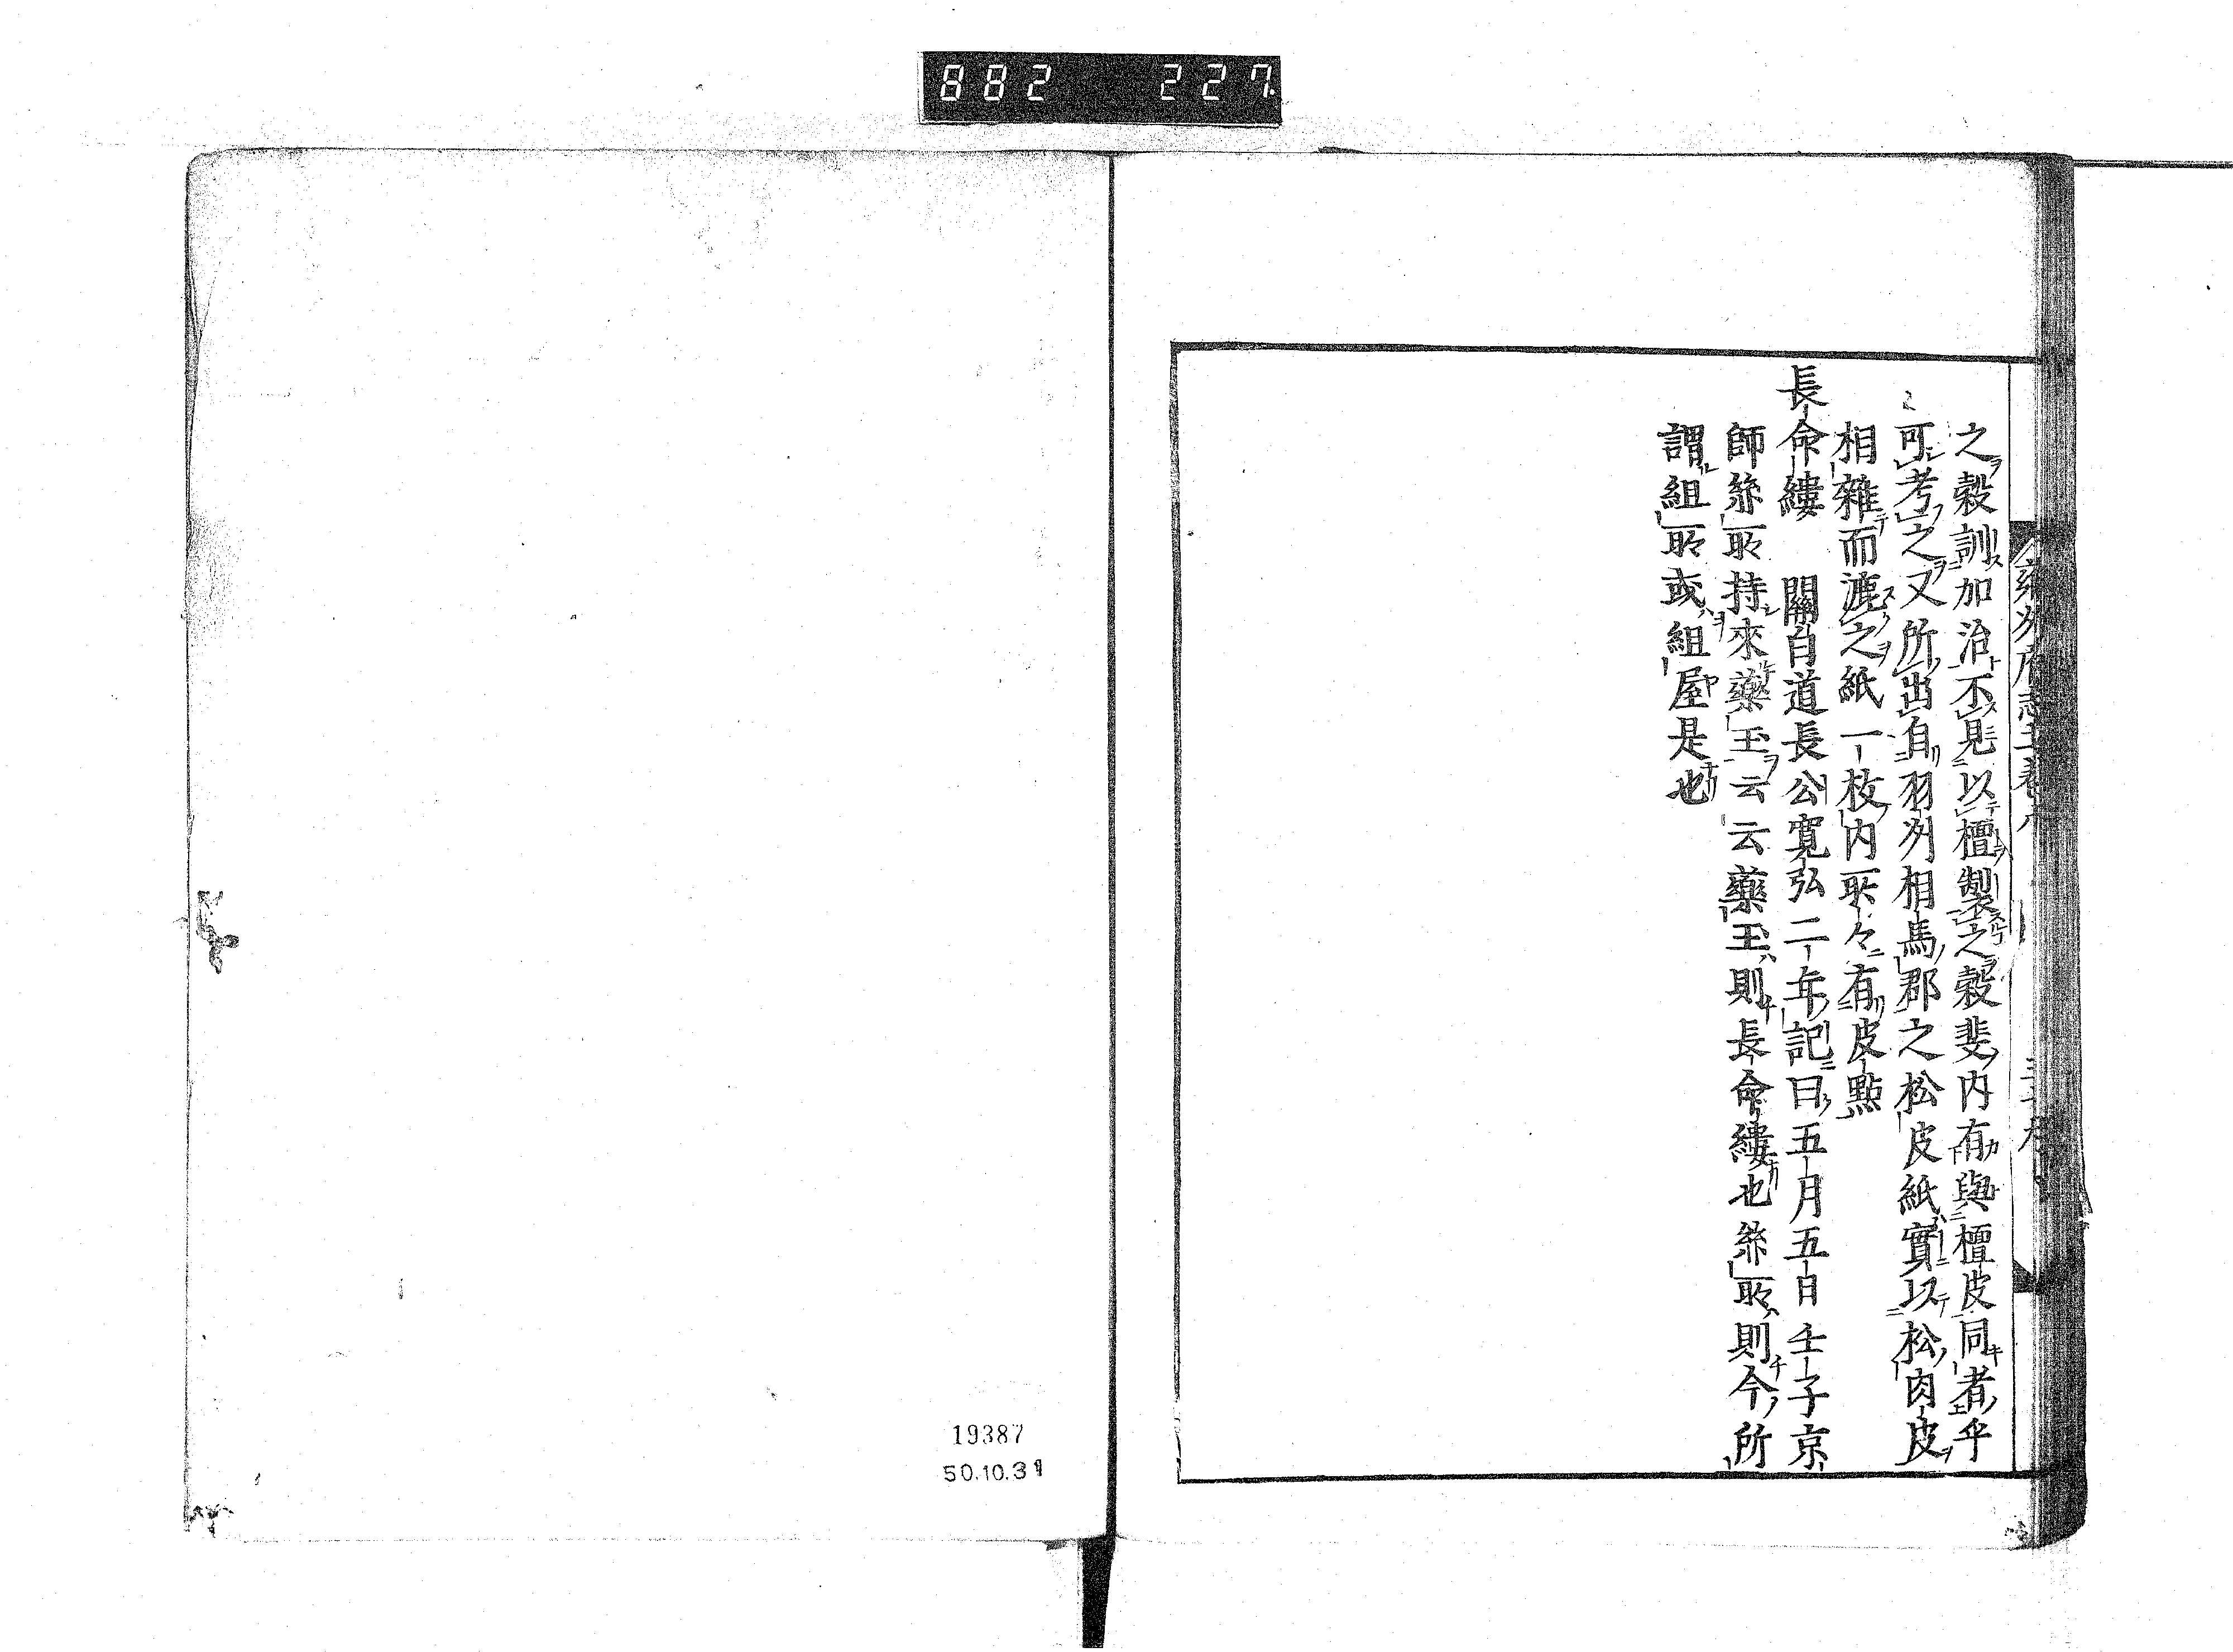 882 227
之穀訓加治不見以檀製之穀斐内有與檀皮同者乎
可考之又所出自羽州相馬郡之松皮紙實以松肉皮
相雜而漉之紙一枚内所々有皮點
長命縷 關白道長公寛弘二年記曰五月五日壬子京
師絲所持來藥玉云云藥玉則長命縷也絲所則今所
謂組所或組屋是也
19387